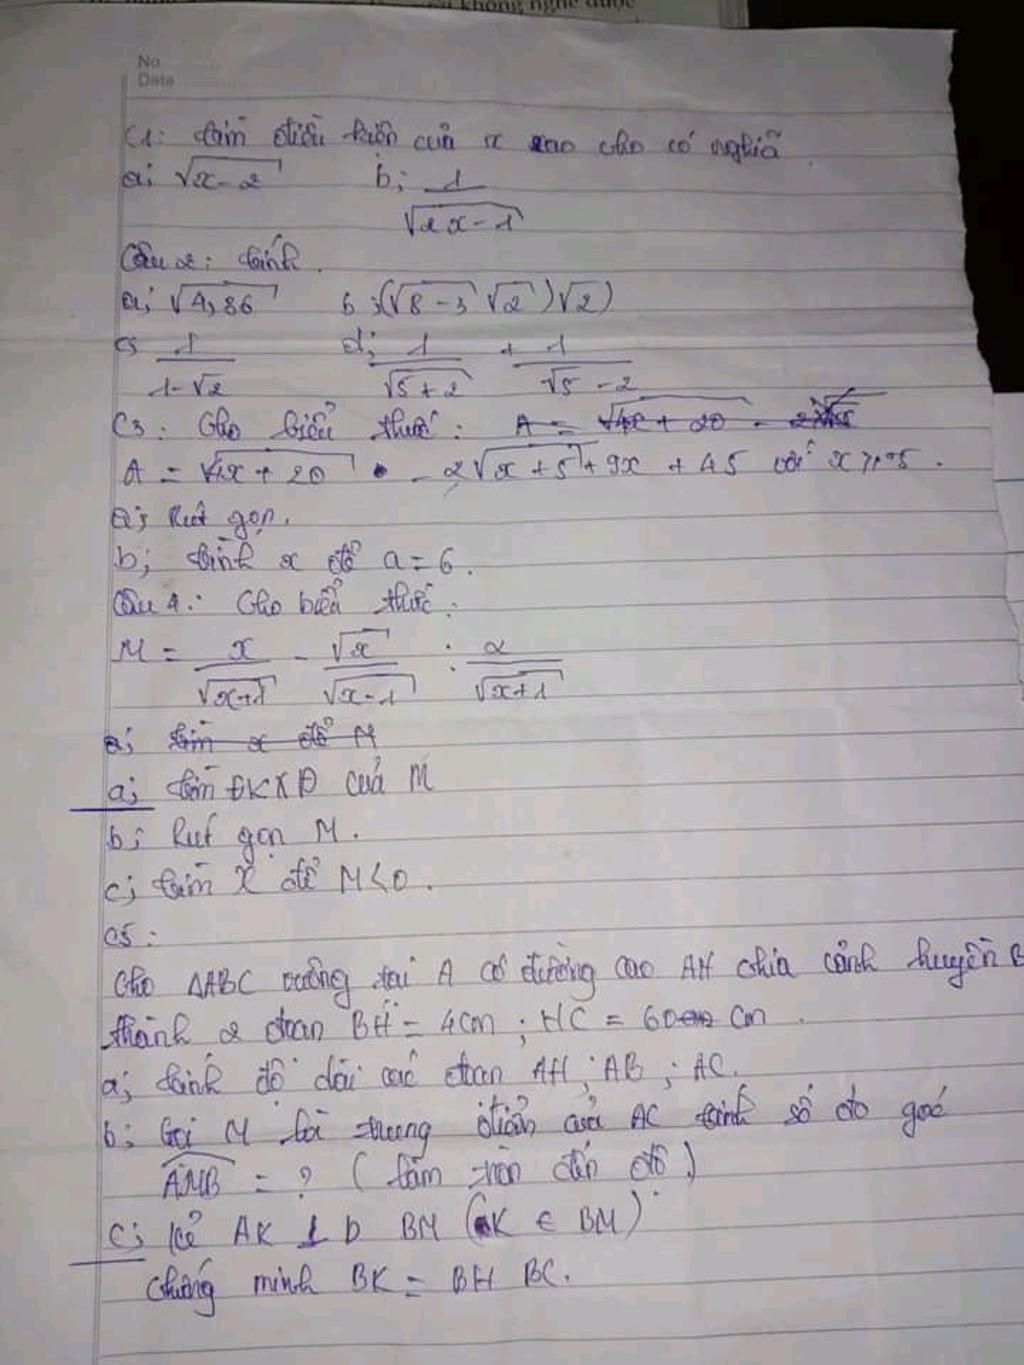 không nghe được
No
Date
C1: tìm điều kiện của x sao cho có nghĩa
a; √x-2 b; 1/√2x-1
Câu 2: tính
a; √4,36 b; (√8-3√2)√2)
c; 1/1-√2 d; 1/√5+2 + 1/√5-2
C3: Cho biểu thức: A = √4x+20 - 2
A = √4x+20 - 2√x+5 + 9x + 45 với x
a; Rút gọn.
b; tính x để a=6.
Câu 4: Cho biểu thức:
M = x/√x+1 - √x/√x-1 : 2/√x+1
a; tìm x để M
a; tìm ĐKXĐ của M
b; Rút gọn M.
c; tìm x để M<0.
C5:
Cho ΔABC vuông tại A có đường cao AH chia cảnh huyền B
thành 2 đoạn BH = 4cm; HC = 6 cm.
a; tính độ dài các đoạn AH; AB; AC.
b; Gọi M là trung điểm của AC tính số đo goć
AMB = ? (làm tròn đến độ)
c; kẻ AK ⊥ b BM (K ∈ BM)
Chứng minh BK = BH BC.